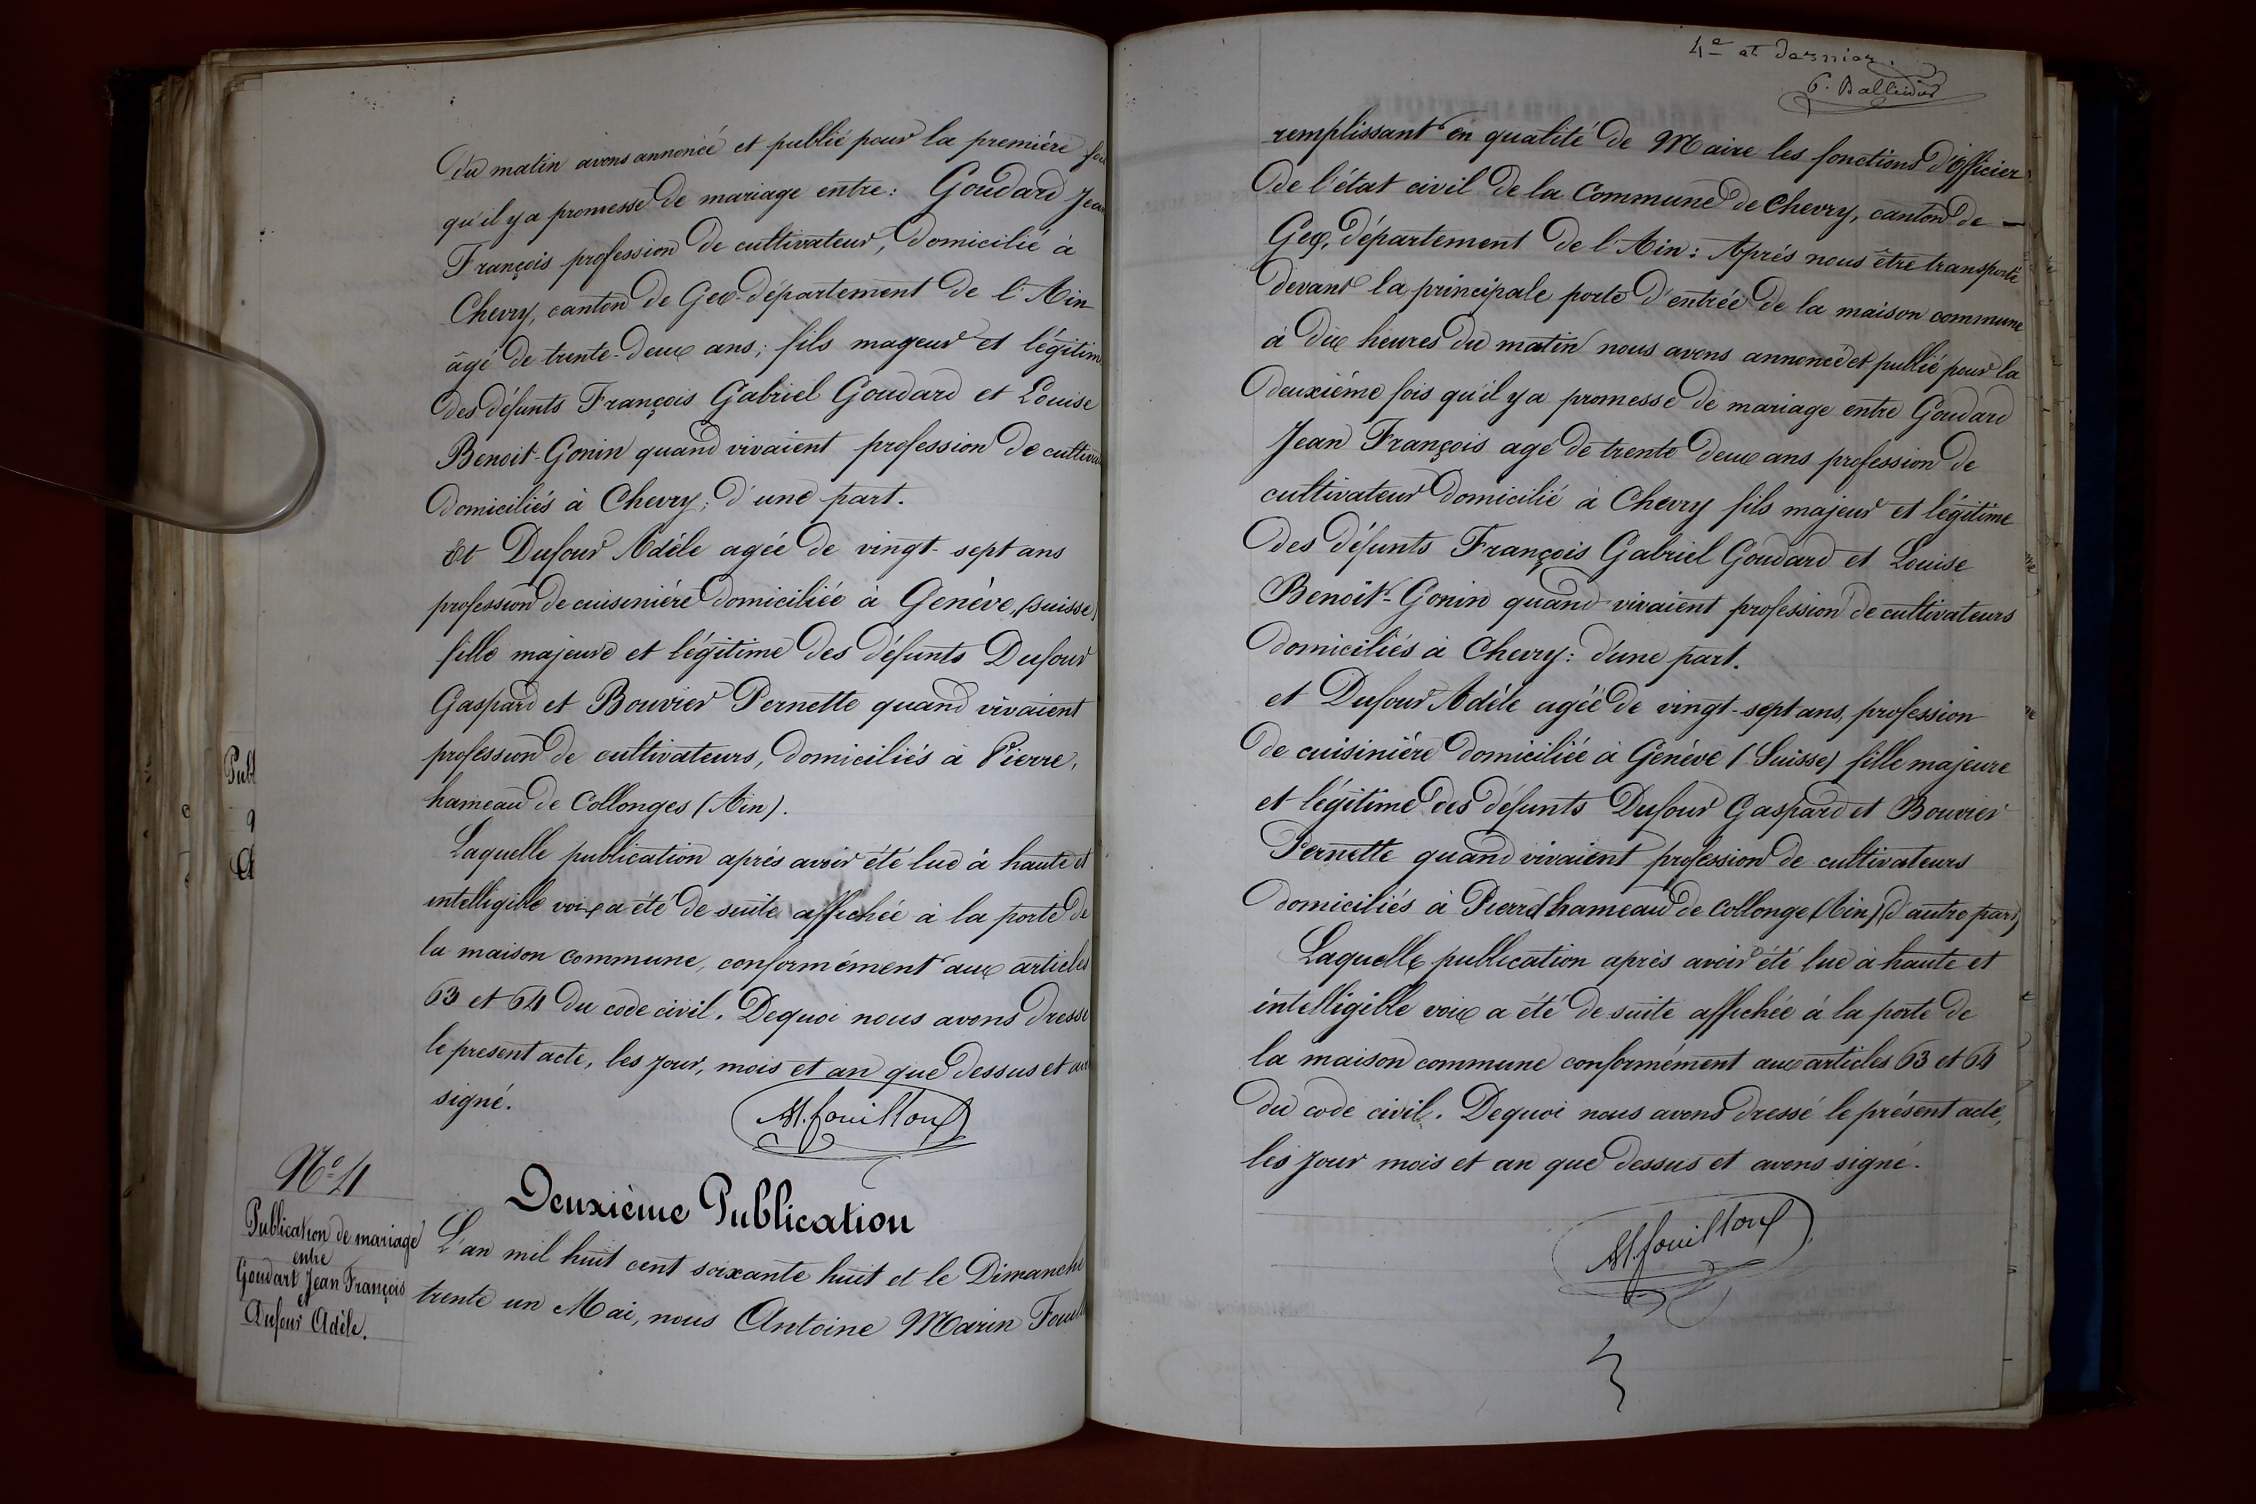 du matin avons annoncé et publié pour la première fois
qu'il y a promesse de mariage entre : Goudard Jean
François profession de cultivateur, domicilié à
Chevry, canton de Gex département de l'Ain
âgé de trente-deux ans ; fils mageur et légitime
des défunts François Gabriel Goudard et Louise
Benoit-Gonin quand vivaient profession de cultiv
domiciliés à Chevry ; d'une part.
Et Dufour Adèle agée de vingt-sept ans
profession de cuisinière domiciliée à Genève, (suisse)
fille majeure et légitime des défunts Dufour
Gaspard et Bouvier Pernette quand vivaient
profession de cultivateurs, domiciliés à Pierre,
hameau de Collonges (Ain).
Laquelle publication après avoir été lue à haute et
intelligible voix a été de suite affichée à la porte de
la maison commune, conformément aux articles
63 et 64 du code civil. Dequoi nous avons dressé
le present acte, les jour, mois et an que dessus et av
signé.
AM. fouilloux
Publ
N° 4
Publication de mariage
entre
Goudart Jean François
et
Dufour Adèle.
Deuxième Publication
L'an mil huit cent soixante huit et le Dimanche
trente un Mai, nous Antoine Marin Fouill
4e et dernier.
remplissant en qualité de Maire les fonctions d'Officier
de l'état civil de la Commune de Chevry, canton de —
Gex, département de l'Ain : Après nous être transporté
devant la principale porte d'entrée de la maison commune
à dix heures du matin nous avons annoncé et publié pour la
deuxième fois qu'il y a promesse de mariage entre Goudard
Jean François agé de trente deux ans profession de
cultivateur domicilié à Chevry fils majeur et légitime
des défunts François Gabriel Goudard et Louise
Benoît-Gonin quand vivaient profession de cultivateurs
domiciliés à Chevry : d'une part.
et Dufour Adèle agée de vingt-sept ans, profession
de cuisinière domiciliée à Genève (Suisse) fille majeure
et légitime des défunts Dufour Gaspard et Bouvier
Pernette quand vivaient profession de cultivateurs
domiciliés à Pierre (hameau de Collonge (Ain) (d'autre part)
Laquelle publication après avoir été lue à haute et
intelligible voix a été de suite affichée à la porte de
la maison commune conformément aux articles 63 et 64
du code civil. Dequoi nous avons dressé le présent acte,
les jour mois et an que dessus et avons signé.
AM. fouilloux